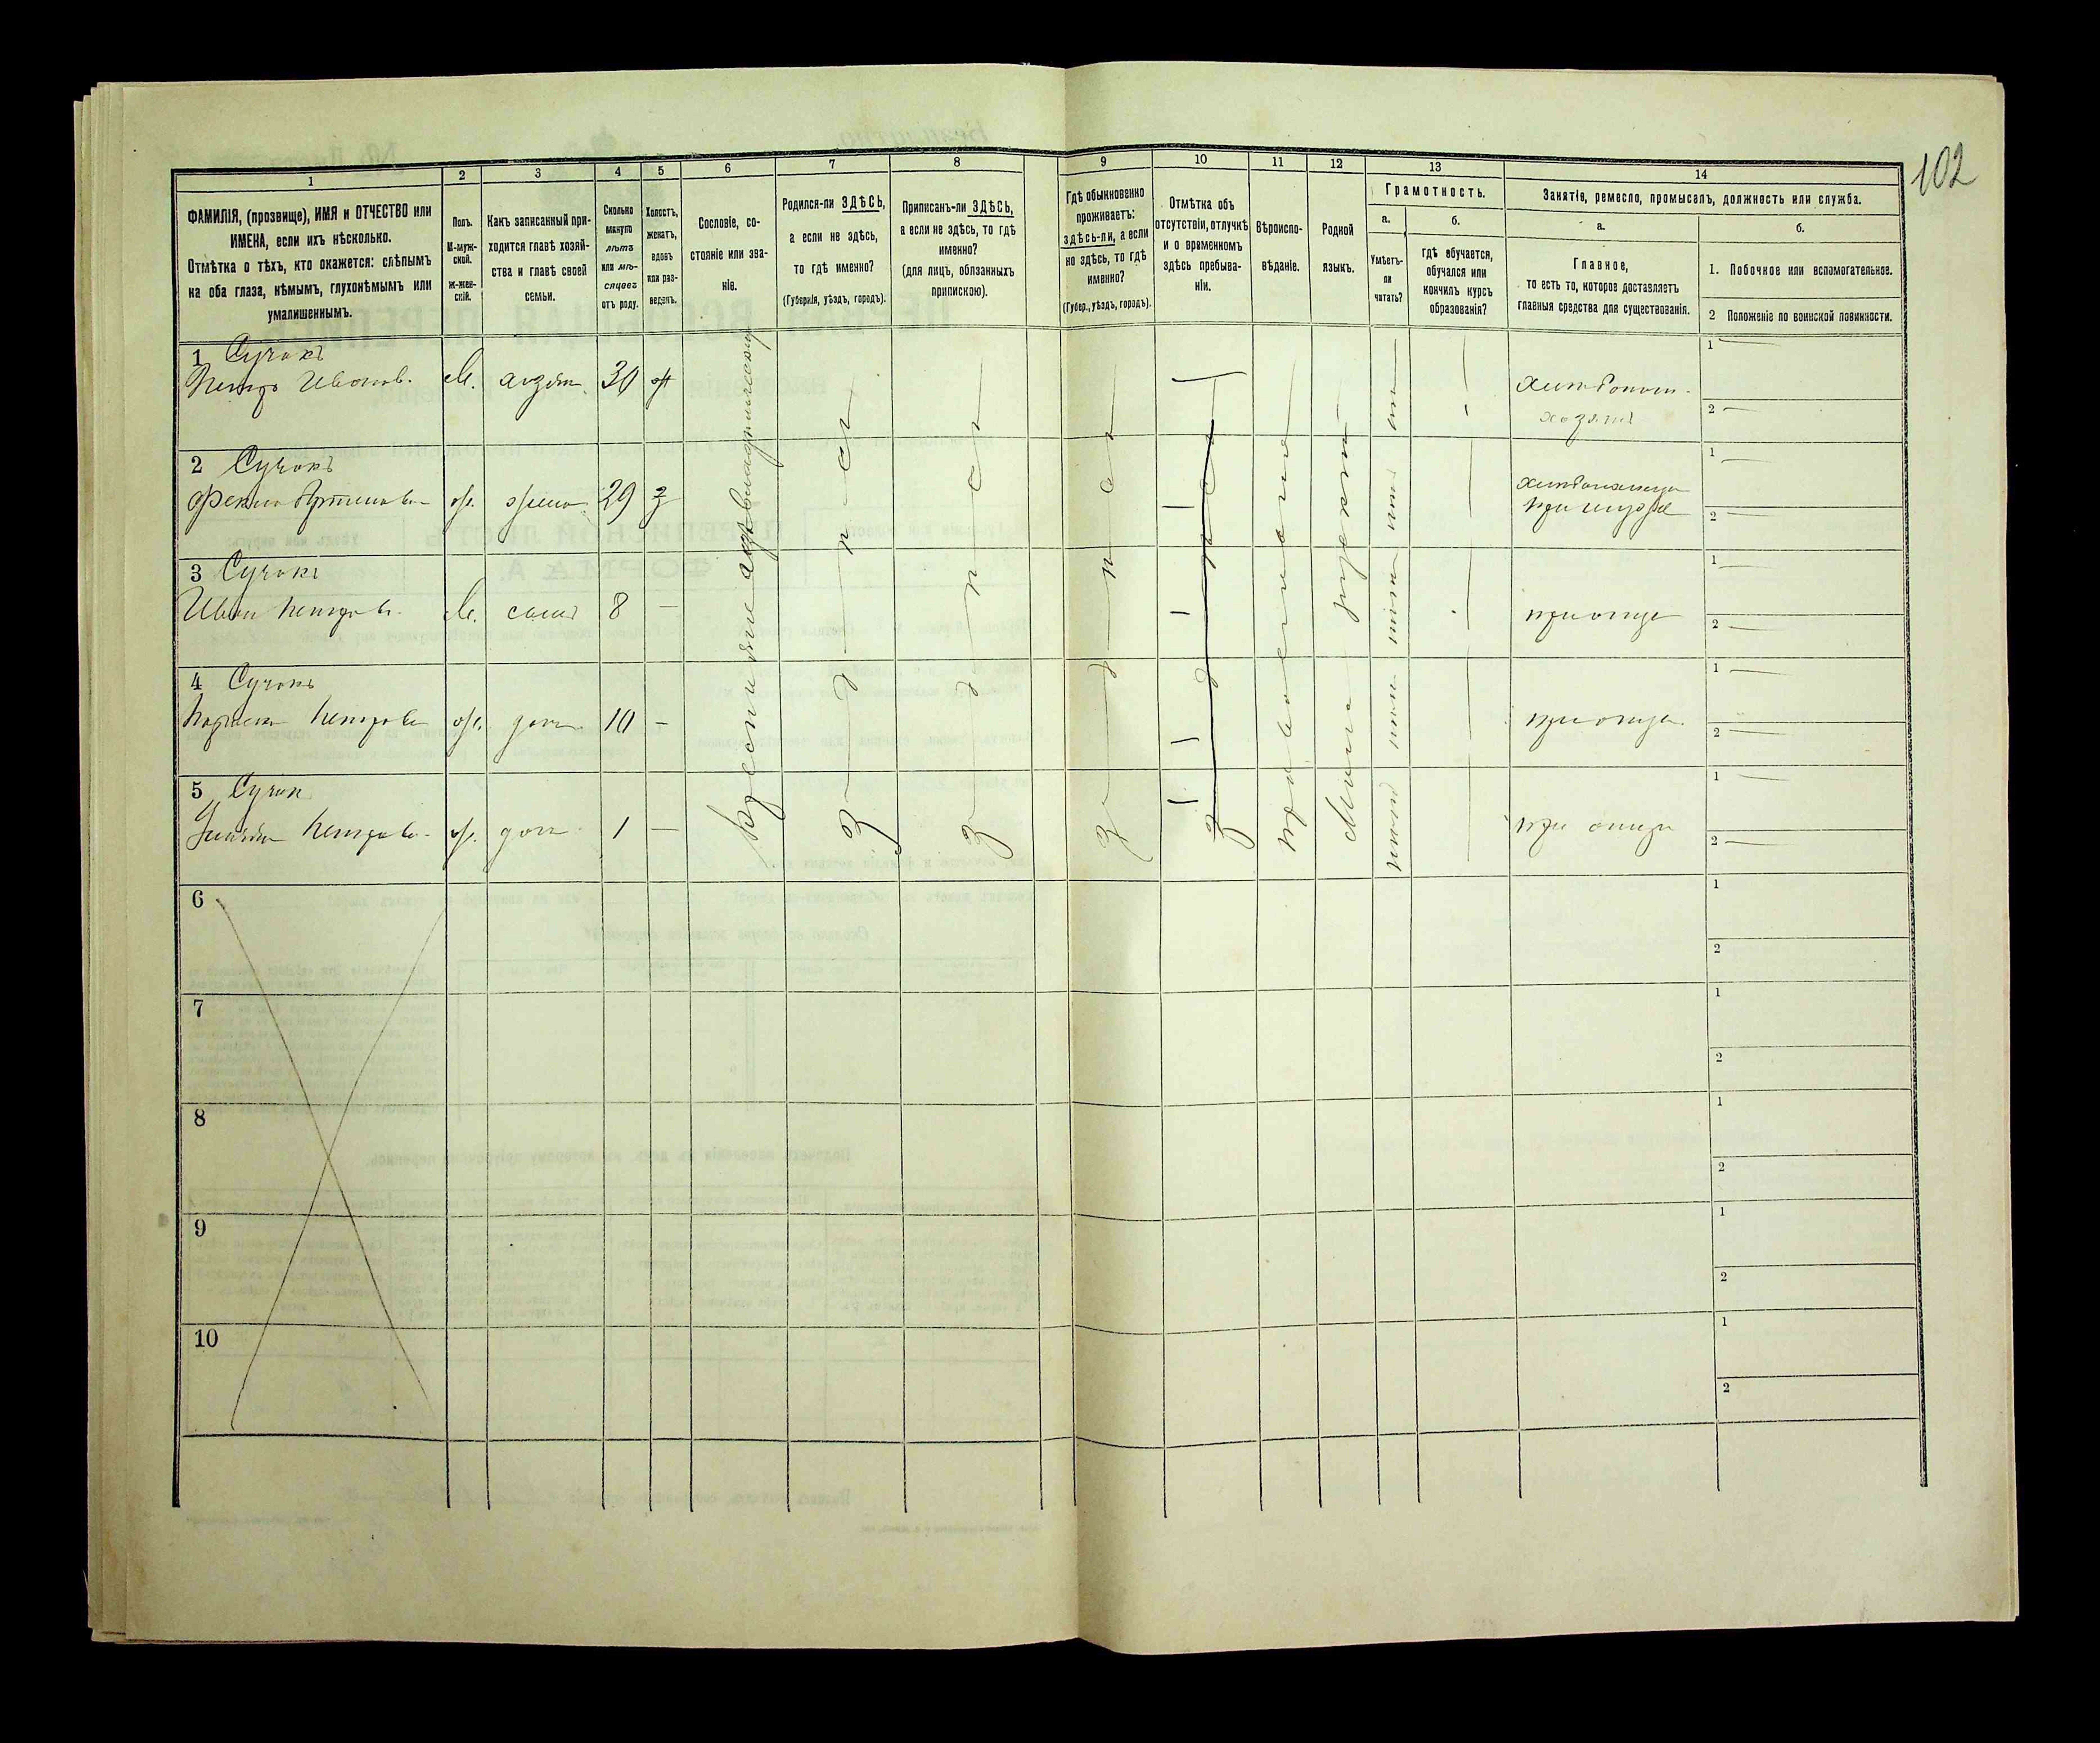 102
1 2 3 4 5 6 7 8 9 10 11 12 13 14
ФАМИЛІЯ, (прозвище), ИМЯ и ОТЧЕСТВО или
ИМЕНА, если ихъ нѣсколько.
Отмѣтка о тѣхъ, кто окажется: слѣпымъ
на оба глаза, нѣмымъ, глухонѣмымъ или
умалишеннымъ.
Полъ.
М-муж-
ской.
Ж-жен-
скій.
Какъ записанный при-
ходится главѣ хозяй-
ства и главѣ своей
семьи.
Сколько
минуло
лѣтъ
или мѣ-
сяцевъ
отъ роду.
Холостъ,
женатъ,
вдовъ
или раз-
веденъ.
Сословіе, со-
стояніе или зва-
ніе.
Родился-ли ЗДѢСЬ,
а если не здѣсь,
то гдѣ именно?
(Губернія, уѣздъ, городъ).
Приписанъ-ли ЗДѢСЬ,
а если не здѣсь, то гдѣ
именно?
(для лицъ, обязанныхъ
припискою).
Гдѣ обыкновенно
проживаетъ:
здѣсь-ли, а если
не здѣсь, то гдѣ
именно?
(Губер., уѣздъ, городъ).
Отмѣтка объ
отсутствіи, отлучкѣ
и о временномъ
здѣсь пребыва-
ніи.
Вѣроиспо-
вѣданіе.
Родной
языкъ.
Грамотность.
а.
Умѣетъ-
ли
читать?
б.
гдѣ обучается,
обучался или
кончилъ курсъ
образованія?
Занятіе, ремесло, промыселъ, должность или служба.
а.
Главное,
то есть то, которое доставляетъ
главныя средства для существованія.
б.
1. Побочное или вспомогательное.
2 Положеніе по воинской повинности.
1 Сучокъ
Петръ Иванов. М. хозяин 30 ж
хозяинъ
2 Сучокъ
Фекла ж. жена 29 з
при мужѣ
3 Сучокъ
Иван Петров. М. сынъ 8 —
при отце
4 Сучокъ
Петрова ж. доч. 10 —
при отце
5 Сучок
Петрова ж. доч. 1 —
при отце
Крестьяне
здесь
здесь
здесь
православное
русский
нет
нет
нет
нет
нет
6
7
8
9
10